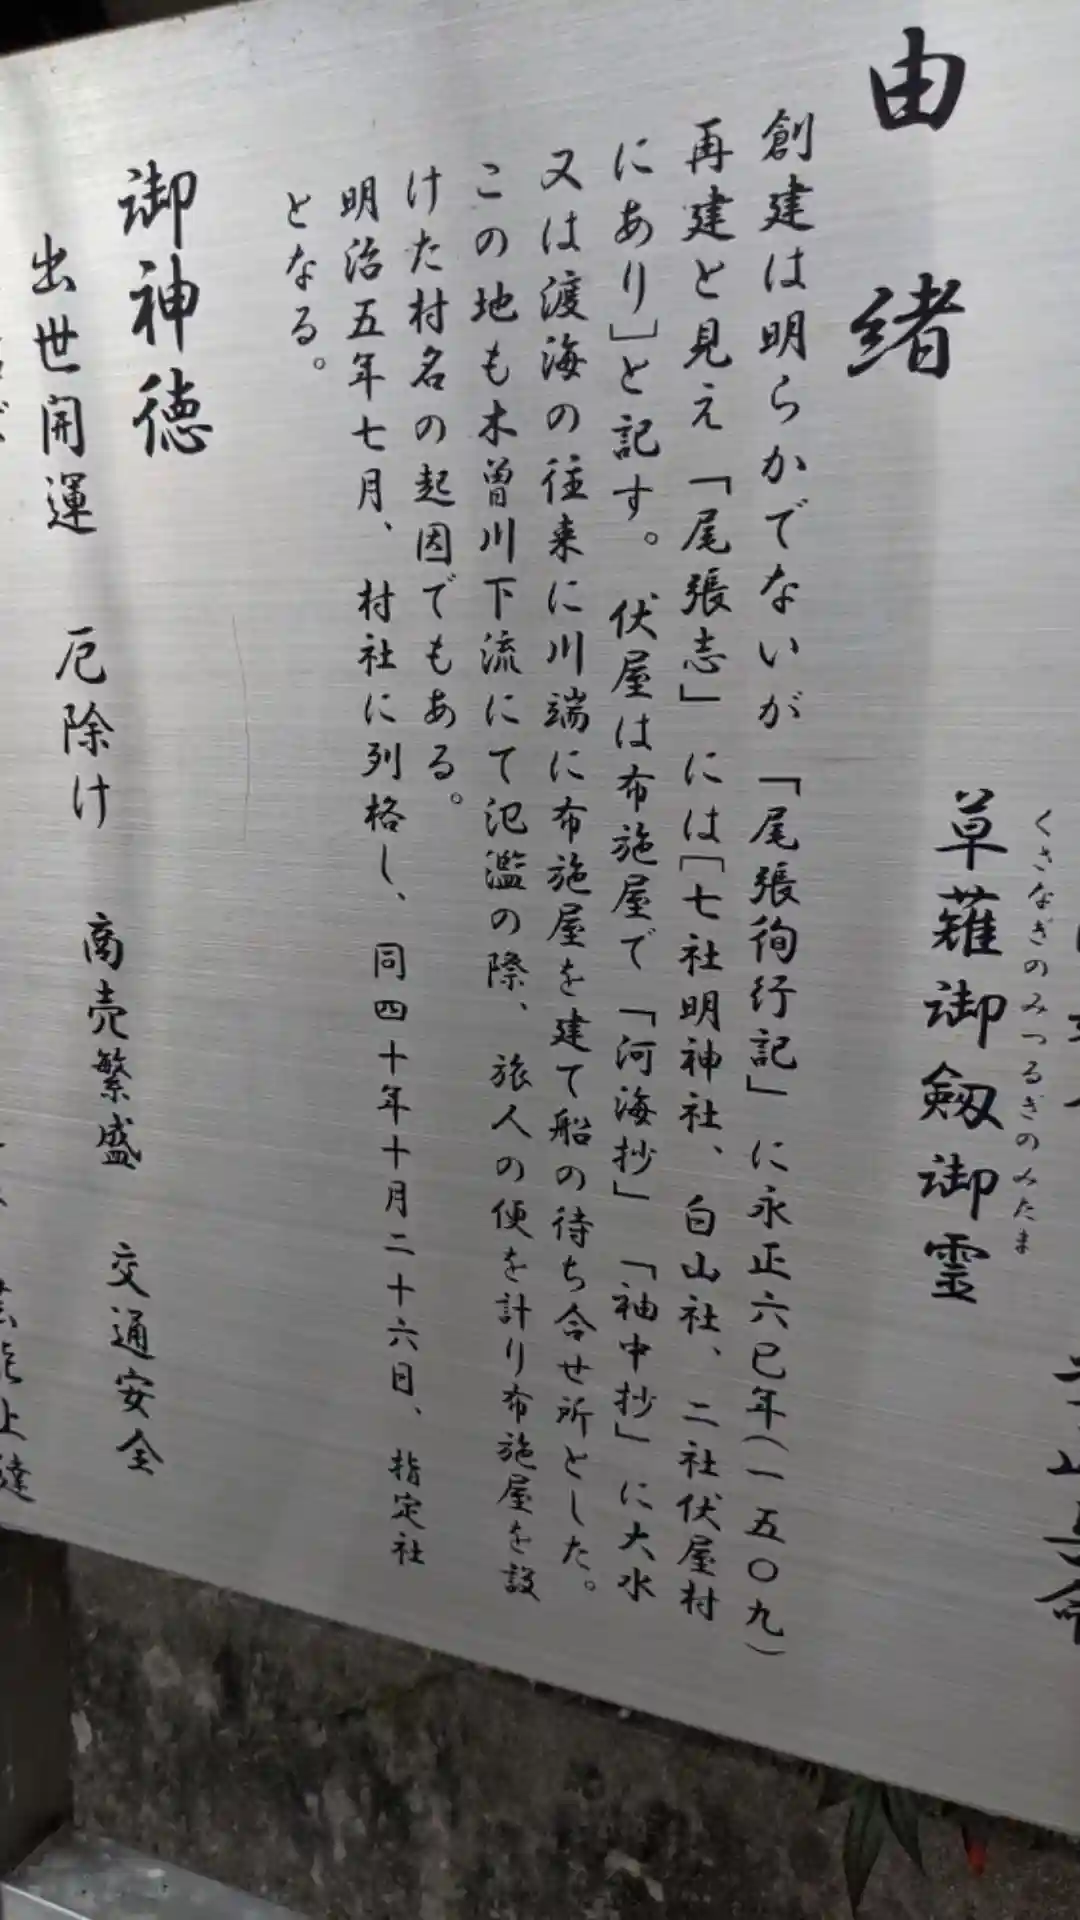 草薙御剱御霊
くさなぎのみつるぎのみたま
由緒
創建は明らかでないが「尾張徇行記」に永正六巳年(一五〇九)
再建と見え「尾張志」には「七社明神社、白山社、二社伏屋村
にあり」と記す。伏屋は布施屋で「河海抄」「袖中抄」に大水
又は渡海の往来に川端に布施屋を建て船の待ち合せ所とした。
この地も木曽川下流にて氾濫の際、旅人の便を計り布施屋を設
けた村名の起因でもある。
明治五年七月、村社に列格し、同四十年十月二十六日、指定社
となる。
御神徳
出世開運 厄除け 商売繁盛 交通安全
芸能上達